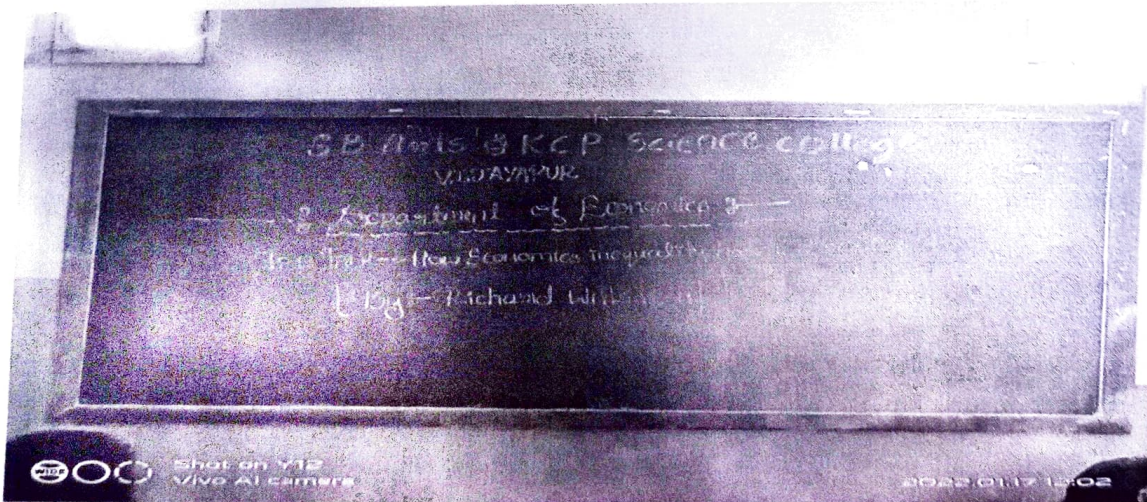 SB Arts & KCP Science college
VIJAYAPUR
Department of Economics
How Economics inequality
By - Richard
WIDE
Shot on Y12
Vivo AI camera
2022.01.17 12:02